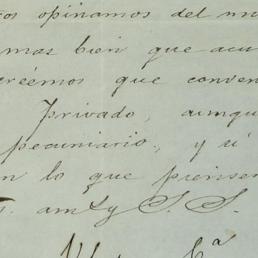 os opinamos del m
mas bien que acu
creémos que conven
Privado, aunqu
pecuniario, y si
n lo que piensen
S. am y S. S.
Cª